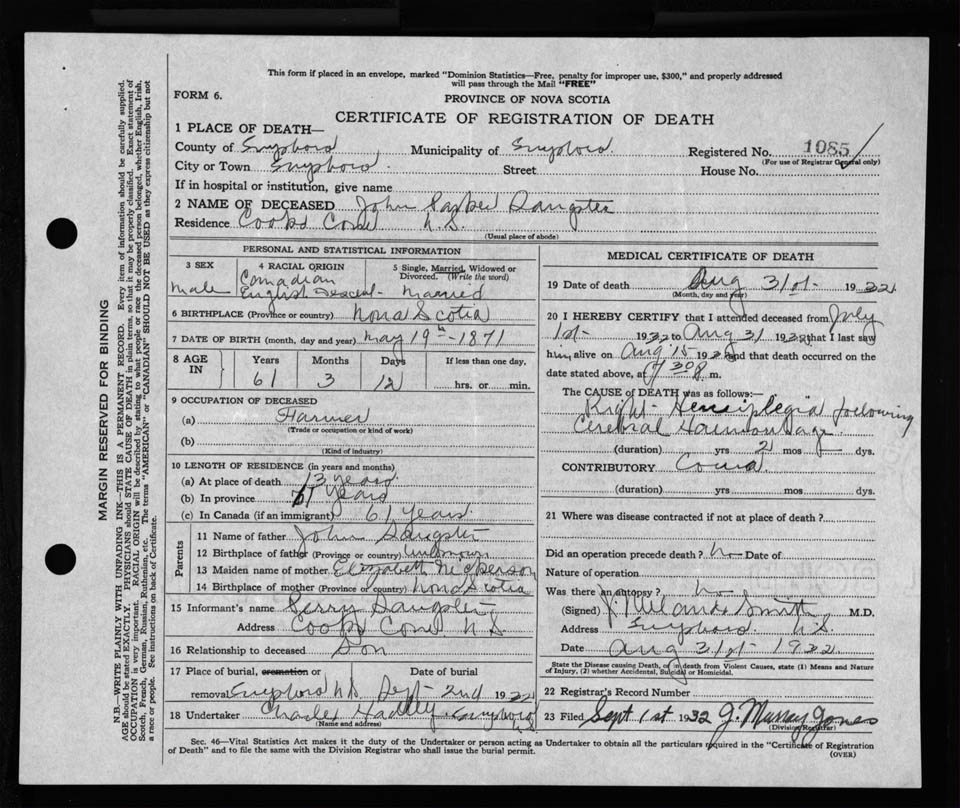 This form if placed in an envelope, marked "Dominion Statistics—Free, penalty for improper use, $300," and properly addressed
will pass through the Mail "FREE"
FORM 6.
PROVINCE OF NOVA SCOTIA
CERTIFICATE OF REGISTRATION OF DEATH
1 PLACE OF DEATH—
County of Guysboro Municipality of Guysboro Registered No. 1085
(For use of Registrar General only)
City or Town Guysboro Street House No.
If in hospital or institution, give name
2 NAME OF DECEASED John Sangster
Residence Cooks Cove N.S.
(Usual place of abode)
PERSONAL AND STATISTICAL INFORMATION
3 SEX
male
4 RACIAL ORIGIN
Canadian
English Descent
5 Single, Married, Widowed or
Divorced. (Write the word)
Married
6 BIRTHPLACE (Province or country) Nova Scotia
7 DATE OF BIRTH (month, day and year) May 19th-1871
8 AGE IN
Years Months Days If less than one day,
61 3 12 hrs. or min.
9 OCCUPATION OF DECEASED
(a) Farmer
(Trade or occupation or kind of work)
(b)
(Kind of industry)
10 LENGTH OF RESIDENCE (in years and months)
(a) At place of death 13 years
(b) In province 61 Years
(c) In Canada (if an immigrant) 61 Years
Parents
11 Name of father John Sangster
12 Birthplace of father (Province or country) Unknown
13 Maiden name of mother Elizabeth Nickerson
14 Birthplace of mother (Province or country) Nova Scotia
15 Informant's name Perry Sangster
Address Cooks Cove N.S.
16 Relationship to deceased Son
17 Place of burial, cremation or Date of burial
removal Guysboro N.S. Sept 2nd 1932
18 Undertaker Charles Hadley, Guysboro N.S.
(Name and address)
MEDICAL CERTIFICATE OF DEATH
19 Date of death Aug 31st 1932
(Month, day and year)
20 I HEREBY CERTIFY that I attended deceased from July
1st 1932 to Aug 31 1932 that I last saw
him alive on Aug 15 1932 and that death occurred on the
date stated above, at m.
The CAUSE OF DEATH was as follows:—
Right Hemiplegia following
Cerebral Haemorrhage
(duration) yrs 2 mos dys.
CONTRIBUTORY Coma
(duration) yrs mos dys.
21 Where was disease contracted if not at place of death?
Did an operation precede death? No Date of
Nature of operation
Was there an autopsy? No
(Signed) Smith M.D.
Address Guysboro N.S.
Date Aug 31st 1932
State the Disease causing Death, or in death from Violent Causes, state (1) Means and Nature
of Injury, (2) whether Accidental, Suicidal or Homicidal.
22 Registrar's Record Number
23 Filed Sept 1st 1932 J. Murray Jones
(Division Registrar)
Sec. 46—Vital Statistics Act makes it the duty of the Undertaker or person acting as Undertaker to obtain all the particulars required in the "Certificate of Registration
of Death" and to file the same with the Division Registrar who shall issue the burial permit.
(OVER)
MARGIN RESERVED FOR BINDING
N.B.—WRITE PLAINLY WITH UNFADING INK—THIS IS A PERMANENT RECORD. Every item of information should be carefully supplied.
AGE should be stated EXACTLY. PHYSICIANS should STATE CAUSE OF DEATH in plain terms, so that it may be properly classified. Exact statement of
OCCUPATION is very important. RACIAL ORIGIN will be described by stating to what people or race the deceased person belonged, whether English, Irish,
Scotch, French, German, Russian, Ruthenian, etc. The terms "AMERICAN" or "CANADIAN" SHOULD NOT BE USED as they express citizenship but not
a race or people. See instructions on back of Certificate.